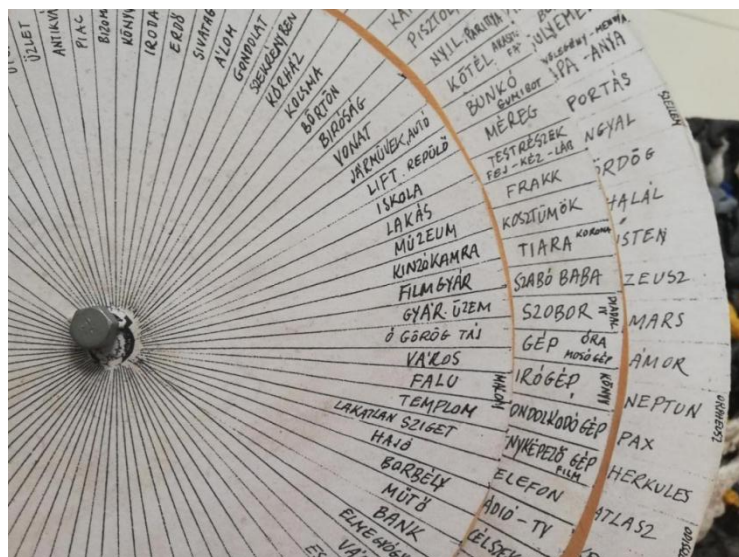 ÜZLET
PIAC
IRODA
ERDŐ
SIVATAG
ÁLOM
GONDOLAT
SZEKRÉNYBEN
KÓRHÁZ
KOCSMA
BÖRTÖN
BIRÓSÁG
VONAT
JÁRMŰVEK, AUTÓ
LIFT. REPÜLŐ
ISKOLA
LAKÁS
MÚZEUM
KINZÓKAMRA
FILMGYÁR
GYÁR. ÜZEM
Ó GÖRÖG TÁJ
VÁROS
FALU
TEMPLOM
LAKATLAN SZIGET
HAJÓ
BORBÉLY
MŰTŐ
BANK
NYIL, PARITYA
KÖTÉL AKASZTÓ FA
BUNKÓ GUMIBOT
MÉREG
TESTRÉSZEK
FEJ-KÉZ-LÁB
FRAKK
KOSZTÜMÖK
TIARA KORONA
SZABÓ BABA
SZOBOR
GÉP ÓRA MOSÓGÉP
IRÓGÉP, KÖNYV
ONDOLKODÓ GÉP
NYKÉPEZŐ GÉP FILM
ELEFON
ÁDIÓ-TV
VŐLEGÉNY-MENYA
PA-ANYA
PORTÁS
SZELLEM
NGYAL
ÖRDÖG
HALÁL
ISTEN
ZEUSZ
MARS
ÁMOR
NEPTUN
ORPHEUSZ
PAX
HERKULES
ATLASZ